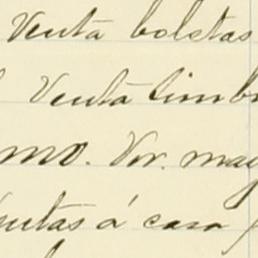 Venta bolstas
Venta timb
mo. Vor. may
uetas á casa